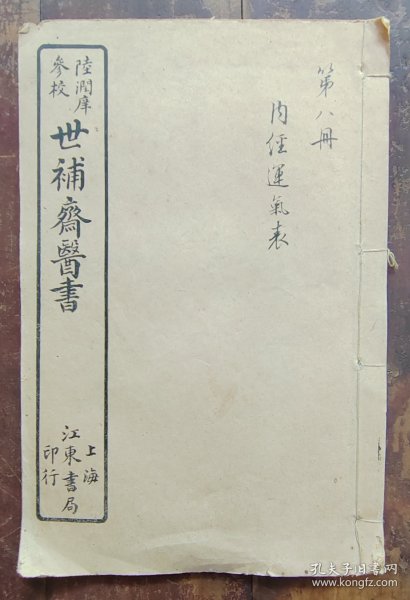 第八冊
內經運氣表
陸潤庠
參校
世補齋醫書
上海
江東書局
印行
孔夫子旧书网
www.kongfz.com